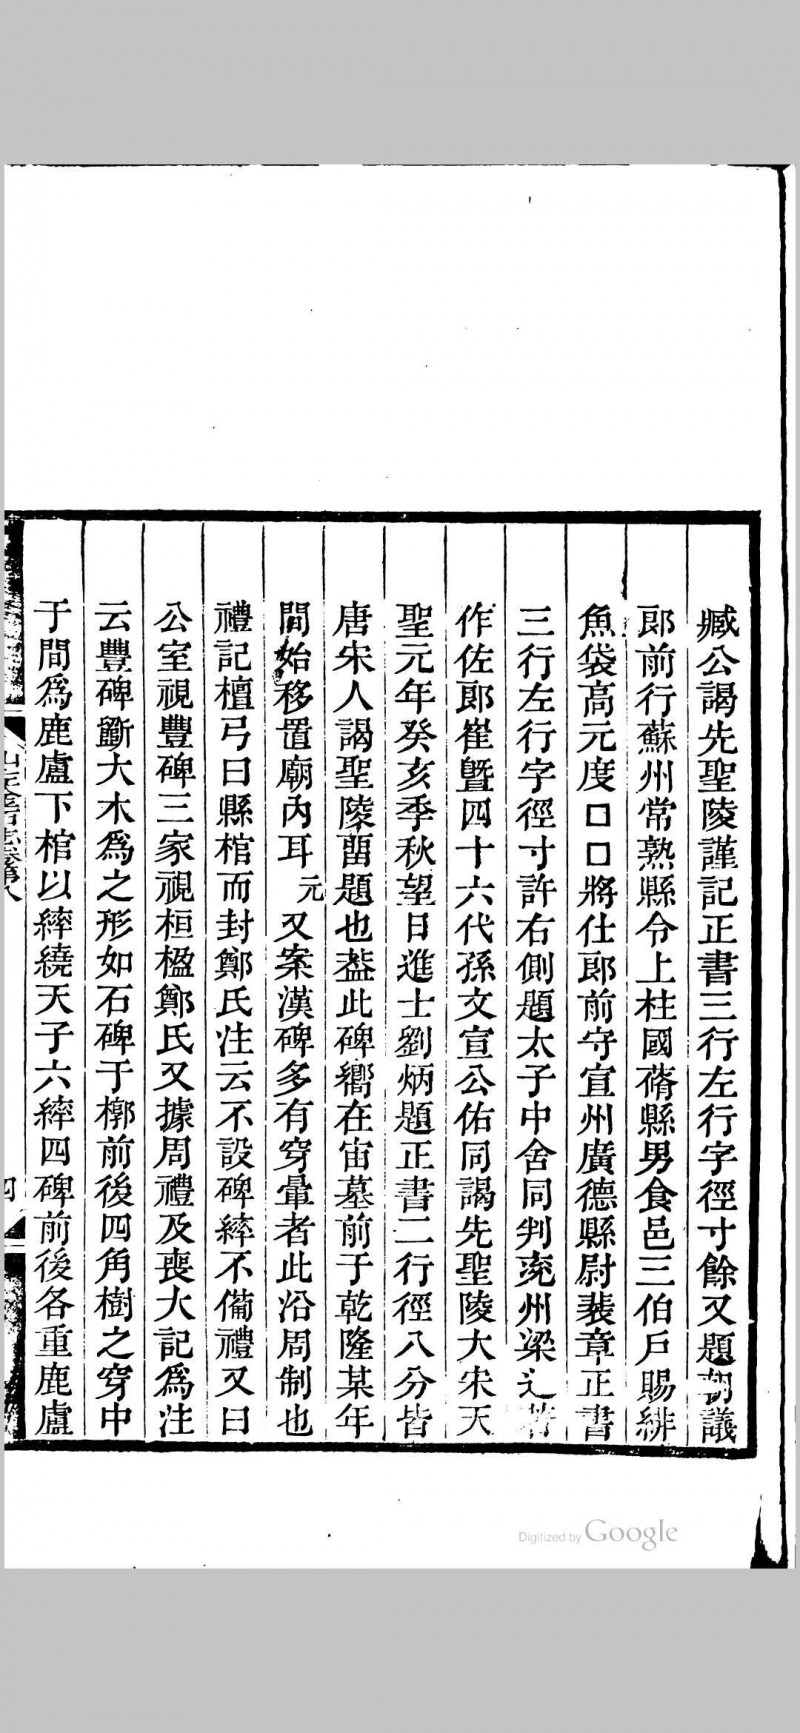 臧公謁先聖陵謹記正書三行左行字徑寸餘又題朝議
郎前行蘇州常熟縣令上柱國蓨縣男食邑三伯戶賜緋
魚袋高元度□□將仕郎前守宣州廣德縣尉裴章正書
三行左行字徑寸許右側題太子中舍同判兗州梁之著
作佐郎崔曁四十六代孫文宣公佑同謁先聖陵大宋天
聖元年癸亥季秋望日進士劉炳題正書二行徑八分皆
唐宋人謁聖陵畱題也葢此碑嚮在宙墓前于乾隆某年
間始移置廟內耳元又案漢碑多有穿暈者此沿周制也
禮記檀弓曰縣棺而封鄭氏注云不設碑繂不備禮又曰
公室視豐碑三家視桓楹鄭氏又據周禮及喪大記爲注
云豐碑斵大木爲之形如石碑于槨前後四角樹之穿中
于間爲鹿盧下棺以繂繞天子六繂四碑前後各重鹿盧
山左金石志卷第八
四
Digitized by Google